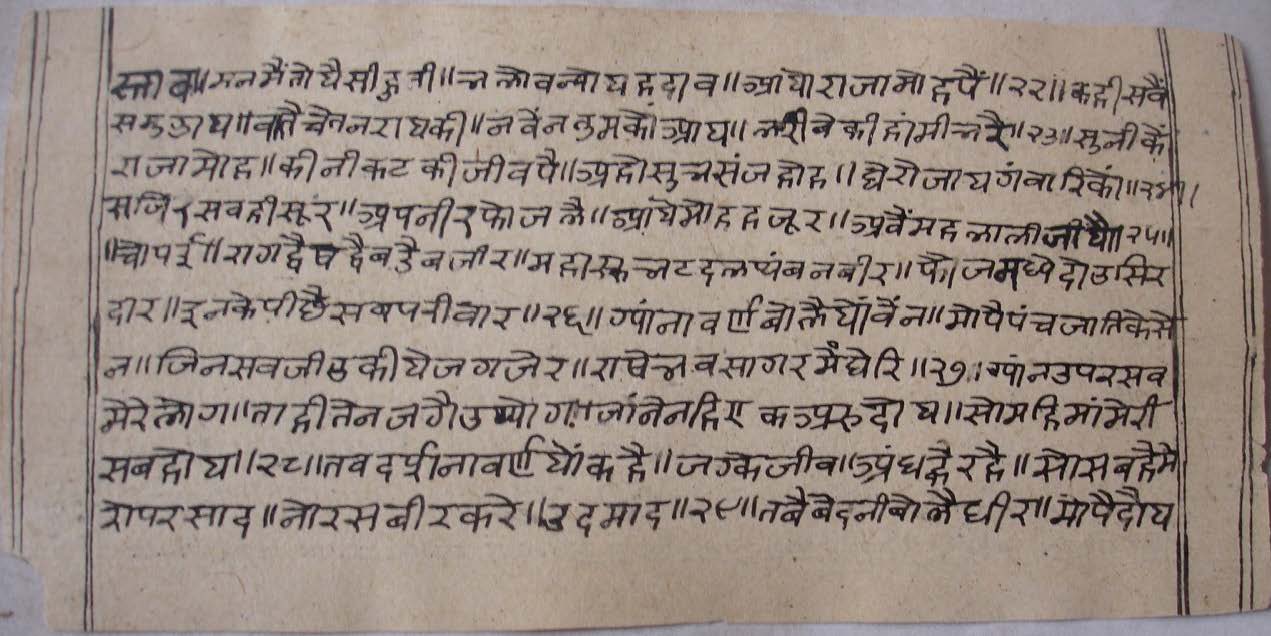 स्ताव॥मनमैंतोयैसीहुती॥भलोवन्योयहदाव॥आयोराजामोहपैं॥२२॥कहीसवैं
समुझाय॥वातैचेतनरायकी॥नवेंनतुमकोंआय॥लरीवेकीहांमीभरै॥२३॥सुनीकें
राजामोह॥कीनीकटकीजीवपै॥अहोसुभसंजहोह॥घेरोजायगंवारिकों॥२४॥
सजिरसवहीसूर॥अपनीरफोजलै॥आयेमोहहजूर॥अवैंमहलालीजीयै॥२५॥
॥चोपई॥रागद्वैषद्वैबडैबजीर॥महासुभटदलथंबनबीर॥फोजमध्येदोउसिर
दार॥इनकेपीछैसबपरीवार॥२६॥ग्यांनावर्णबोलैयोंवेंन॥मोपैपंचजातिकेसे
न॥जिनसवजीउकीयेजगजेर॥राषेभवसागरमेंघेरि॥२७॥ग्यांनउपरसव
मेरेलोग॥ताहीतेनजगैउप्योग॥जांनेनहिएकअरुदोय॥सोमहिमांमेरी
सबहोय॥२८॥तवदर्षनावर्णयोंकहै॥जगकेजीवअंधह्वैरहै॥सोसबहैमे
रोपरसाद॥नोरसबीरकरे॥उदमाद॥२९॥तबैबेदनीबोलैधीर॥मोपैदोय